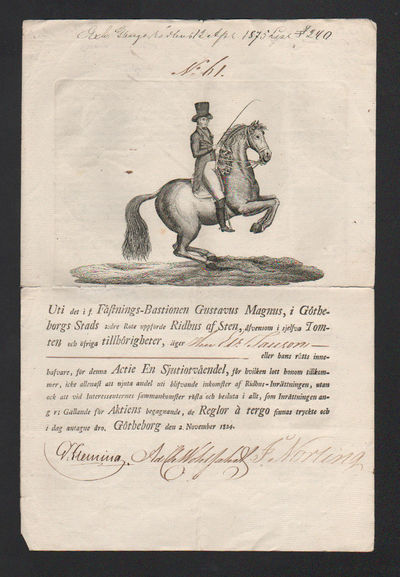 12 Apr 1875 $240
No. 61.
Uti det i f. Fästnings-Bastionen Gustavus Magnus, i Göthe-
borgs Stads 2:dre Rote uppförde Ridhus af Sten, äfvensom i sjelfva Tom-
ten och öfriga tillhörigheter, äger
eller hans rätts inne-
hafvare, för denna Actie En Sjutiotvåendel, för hvilken lott honom tillkom-
mer, icke allenast at njuta andel uti blifvande inkomster af Ridhus-Inrättningen, utan
ock att vid Interessenternes sammankomster rösta och besluta i allt, som Inrättningen an-
går; Gällande för Aktiens begagnande, de Reglor å tergo finnas tryckte och
i dag antagne äro. Götheborg den 2. November 1824.
F. Norling